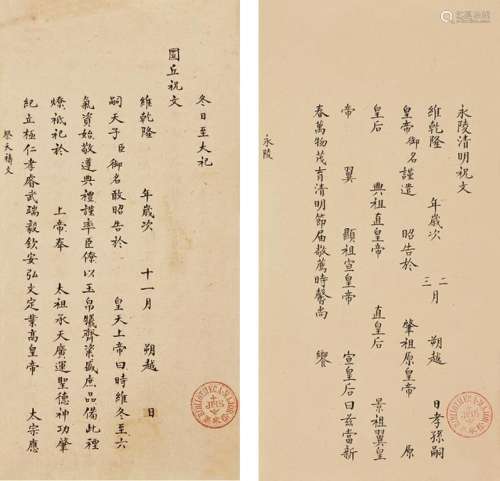 永陵清明祝文
維乾隆 年歲次 二三月 朔越 日孝孫嗣
皇帝御名謹遣 昭告於 肇祖原皇帝 原
皇后 興祖直皇帝 直皇后 景祖翼皇
帝 翼 顯祖宣皇帝 宣皇后曰茲當新
春萬物茂育清明節屆敬薦時馨尚 饗
永陵
冬日至大祀
圜丘祝文
維乾隆 年歲次 十一月 朔越 日
嗣天子臣御名敢昭告於 皇天上帝曰時維冬至六
氣資始敬遵典禮謹率臣僚以玉帛犧齊粢盛庶品備此禋
燎祗祀於 上帝奉 太祖承天廣運聖德神功肇
紀立極仁孝睿武端毅欽安弘文定業高皇帝 太宗應
祭天禱文